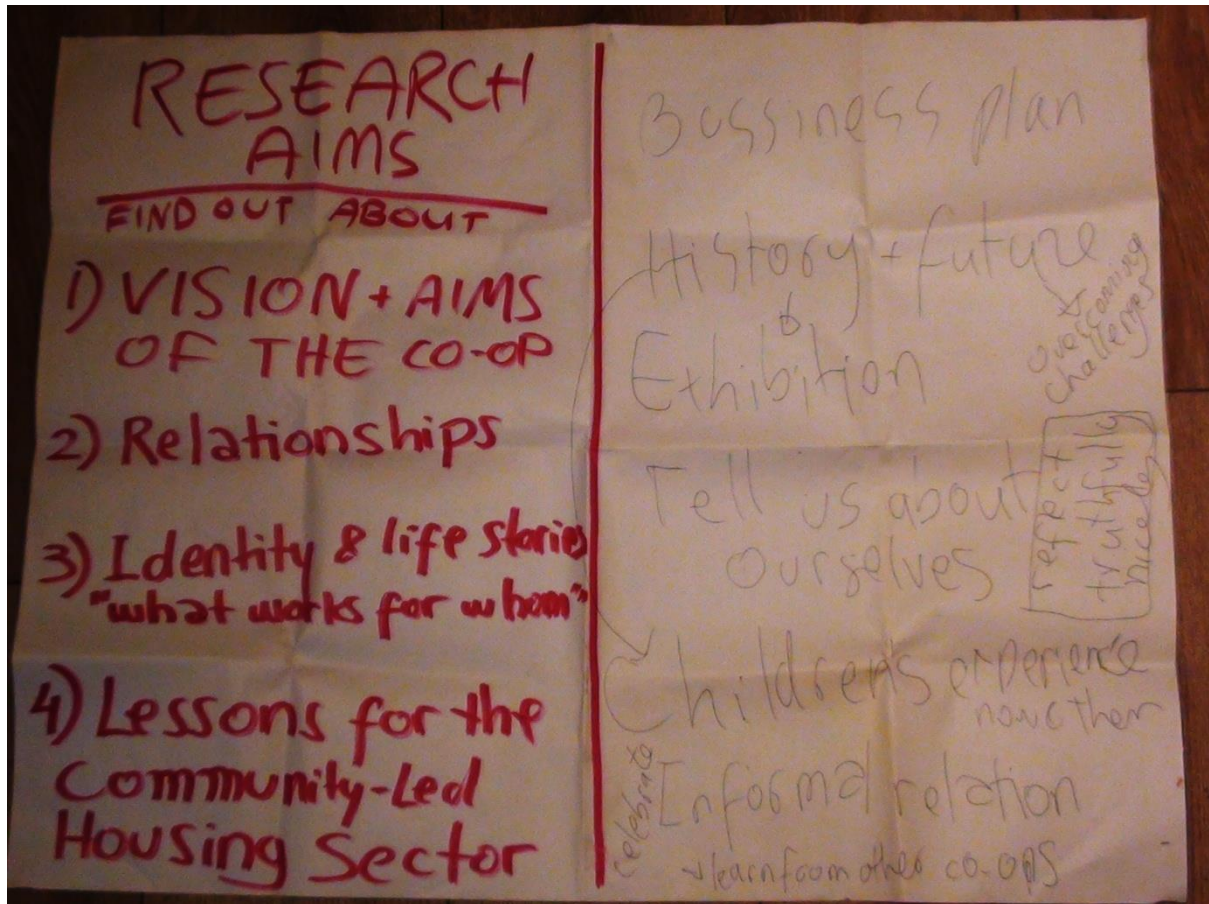 RESEARCH
AIMS
FIND OUT ABOUT
1) VISION + AIMS
OF THE CO-OP
2) Relationships
3) Identity & life stories
"what works for whom"
4) Lessons for the
Community-Led
Housing Sector
Bussiness plan
History + future
overcoming
challenges
Exhibition
Tell us about
ourselves
reflect
truthfully
nicely
Childrens experience
now & then
celebrate
Informal relation
learn from other co-ops